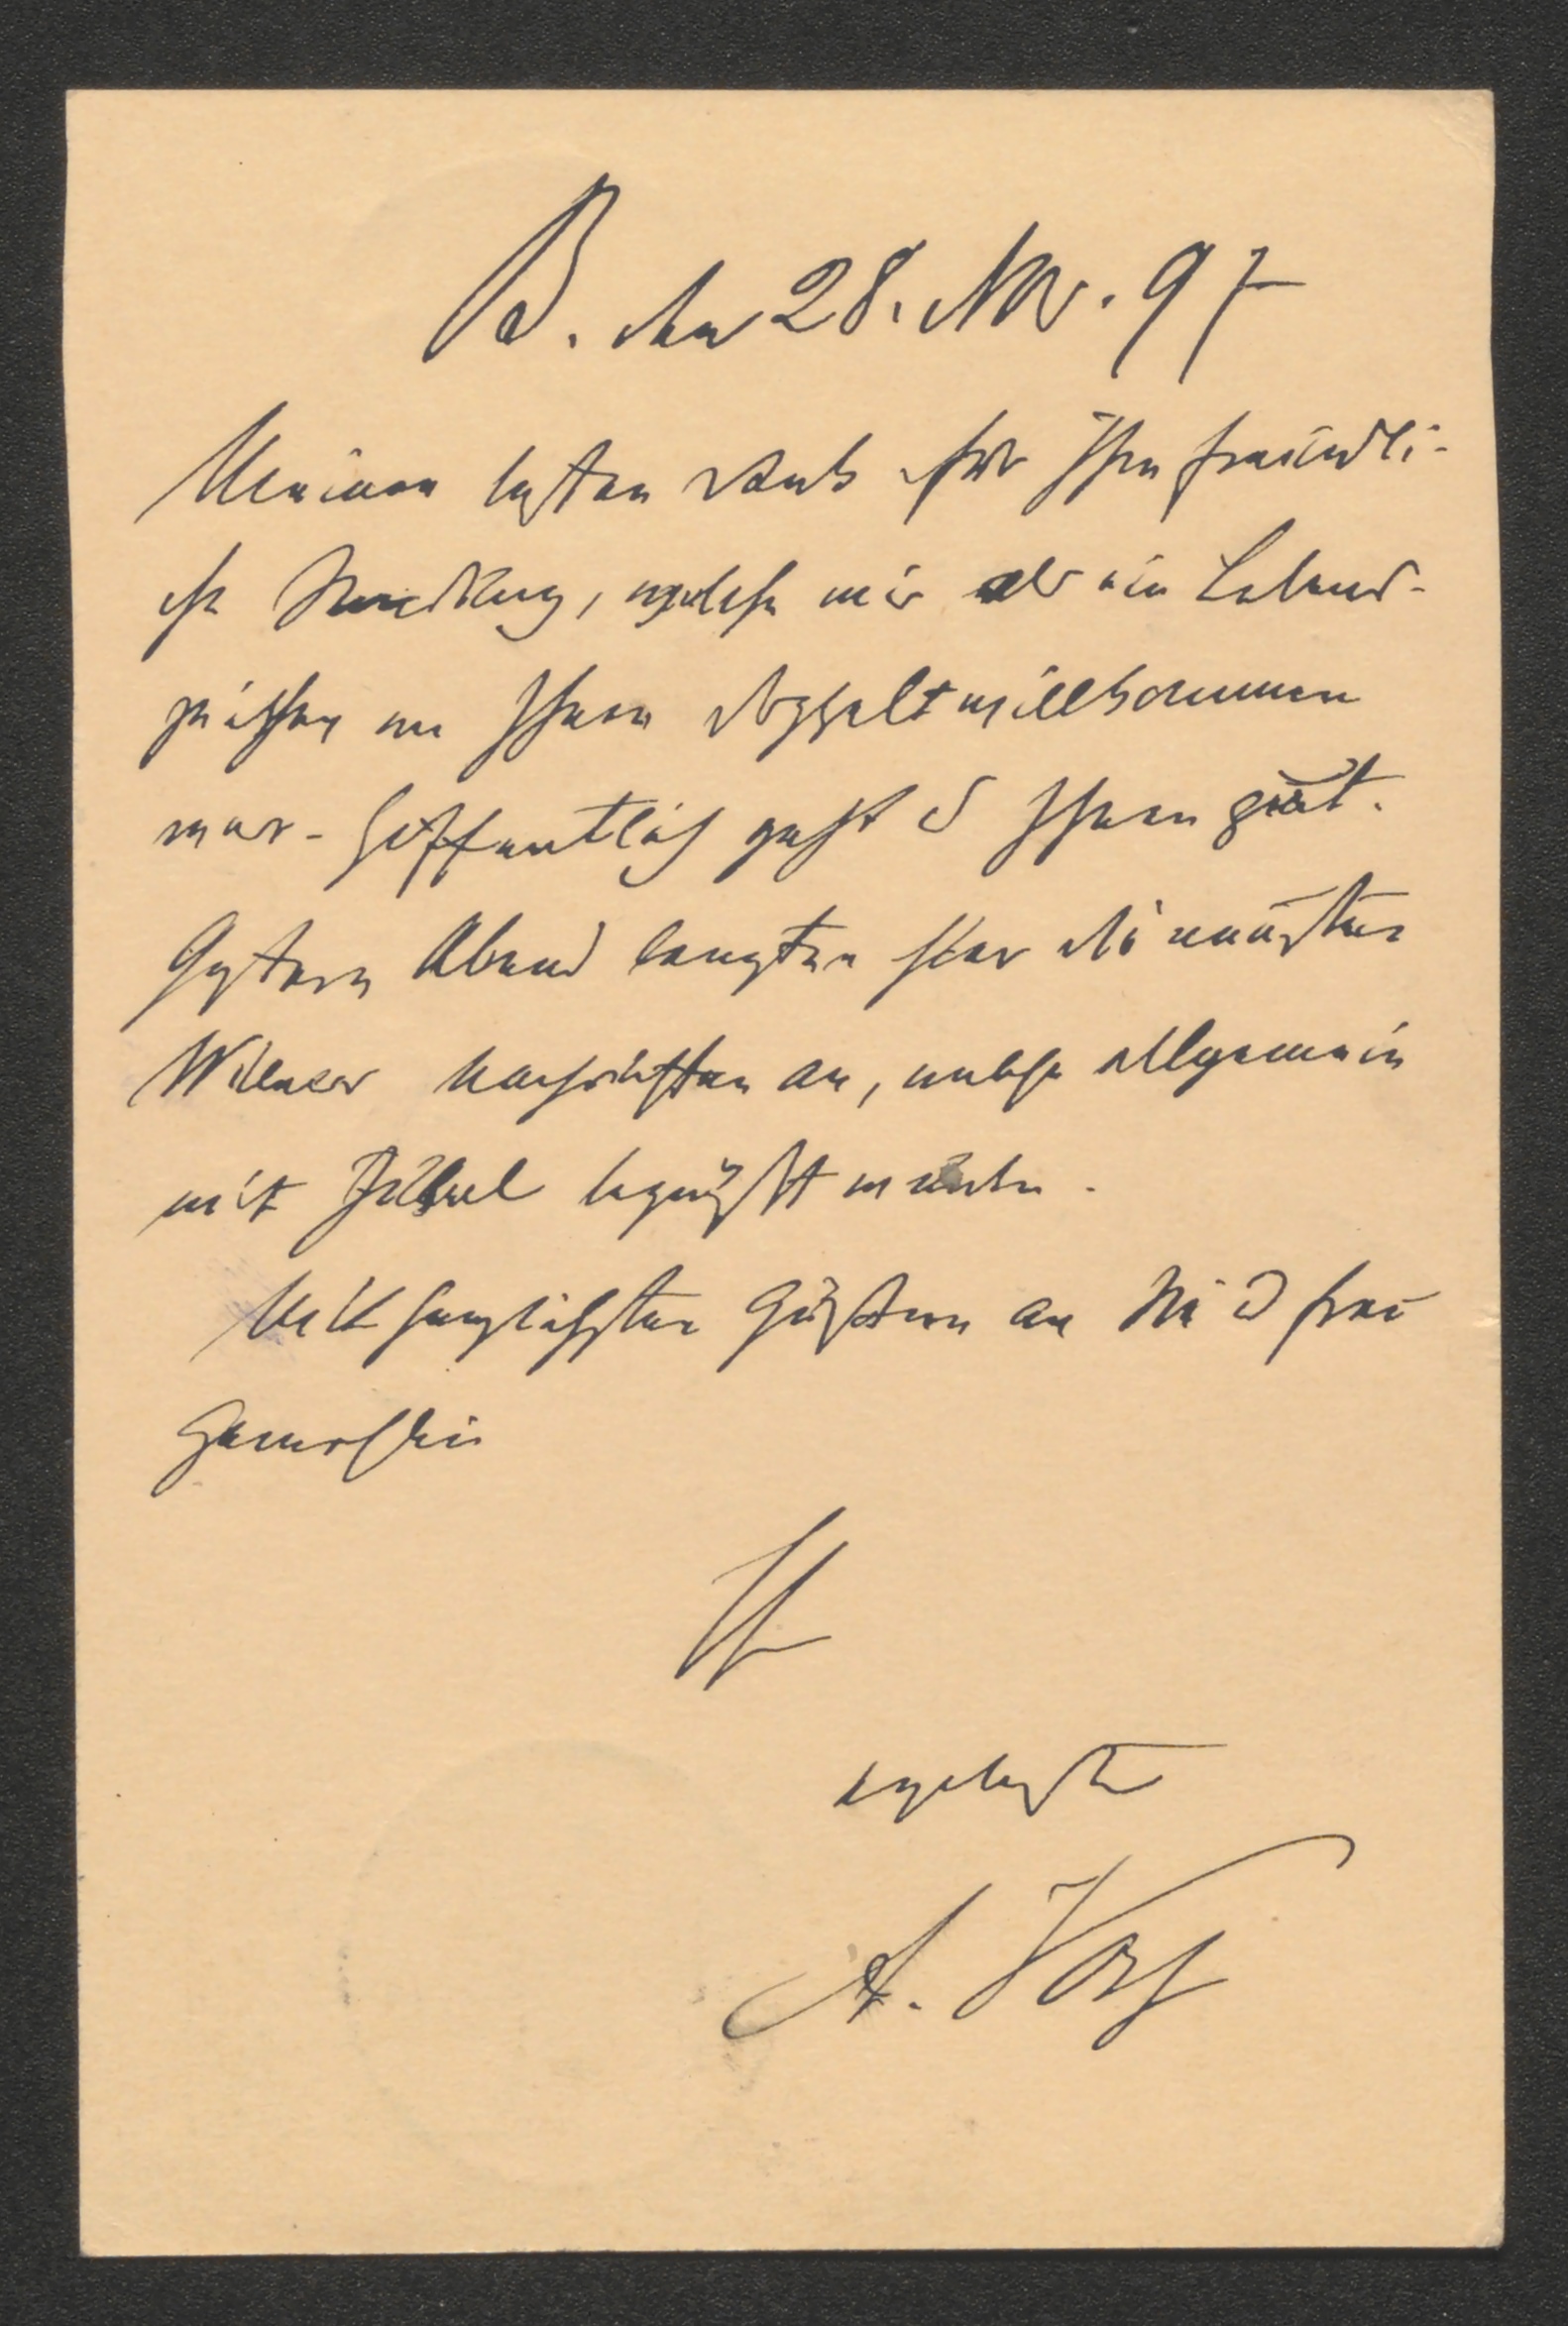 B. den 28. Nov. 97
Meinen besten Dank für Ihre freundli-
che Sendung, welche mir als ein Lebens-
zeichen von Ihnen doppelt willkommen
war. Hoffentlich geht es Ihnen gut.
Gestern Abend langten hier die neuesten
Wiener Nachrichten an, welche allgemein
mit Jubel begrüßt wurden.
Mit herzlichsten Grüßen an Sie & Frau
Gemahlin
Ihr
ergebenster
A.